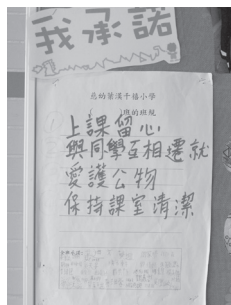 我承諾
慈幼葉漢千禧小學
班的班規
上課留心
與同學互相遷就
愛護公物
保持課室清潔